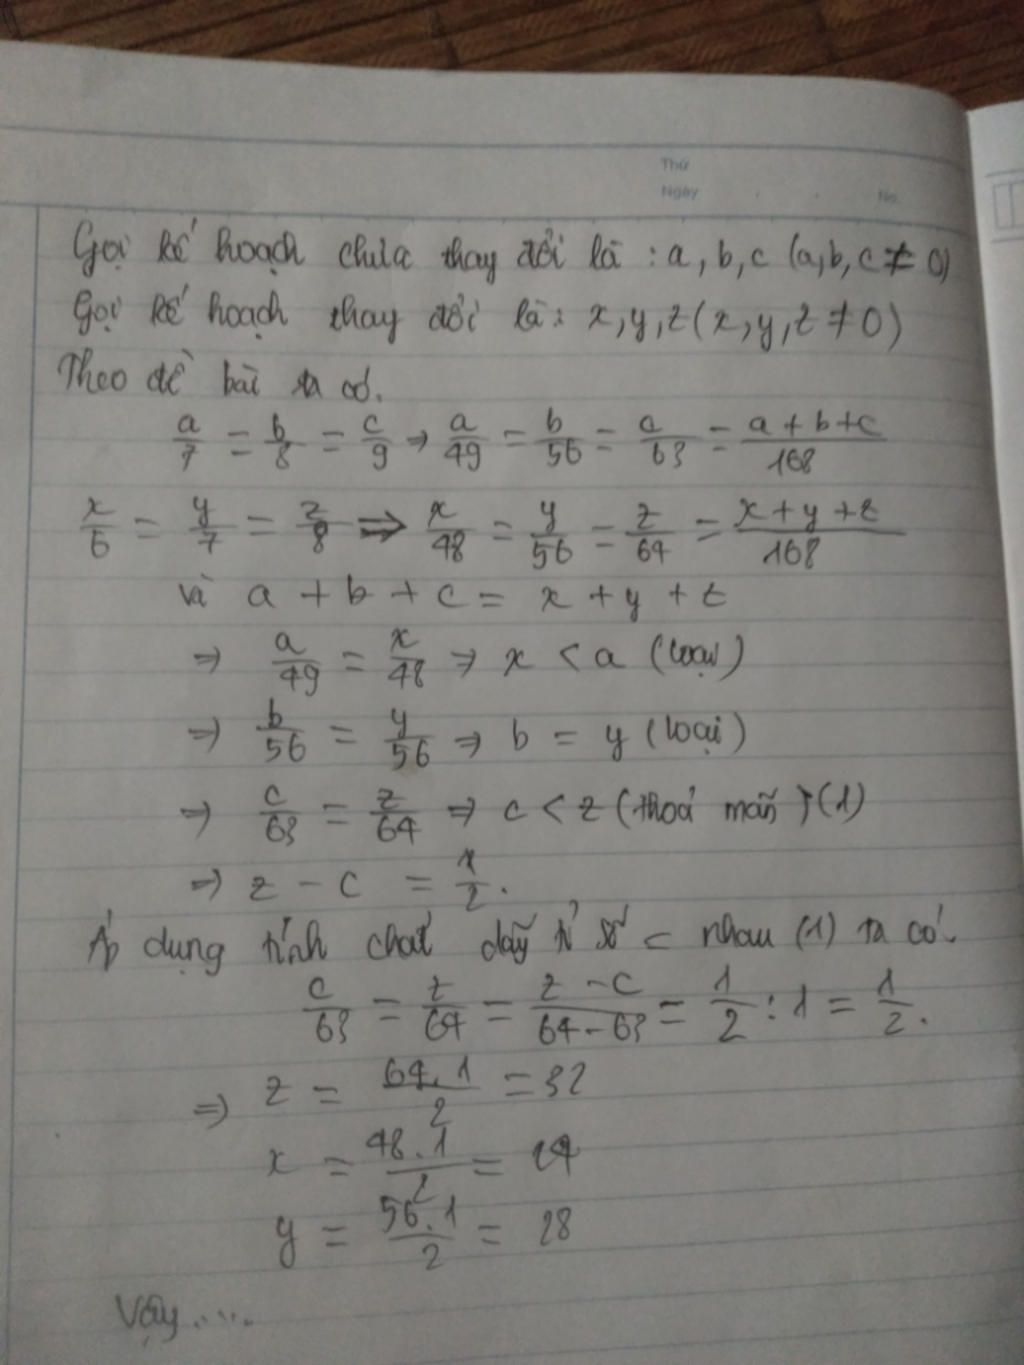 Thứ
Ngày . . No.
Gọi kế hoạch chưa thay đổi là : a, b, c (a, b, c ≠ 0)
Gọi kế hoạch thay đổi là: x, y, z (x, y, z ≠ 0)
Theo đề bài ta có.
a/7 = b/8 = c/9 → a/49 = b/56 = c/63 = a + b + c/168
x/6 = y/7 = z/8 => x/48 = y/56 = z/64 = x + y + z/168
và a + b + c = x + y + z
=> a/49 = x/48 => x < a (loại)
=> b/56 = y/56 => b = y (loại)
=> c/63 = z/64 => c < z (thoả mãn) (1)
=> z - c = 1/2.
Áp dụng tính chất dãy tỉ số = nhau (1) ta có.
c/63 = z/64 = z - c/64 - 63 = 1/2 : 1 = 1/2.
=> z = 64.1/2 = 32
x = 48.1/2 = 24
y = 56.1/2 = 28
Vậy .....